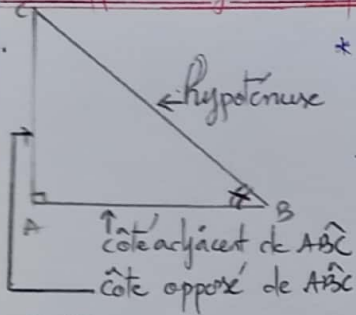 C
*
hypoténuse
A
B
côté adjacent de ABĈ
côte opposé de ABĈ